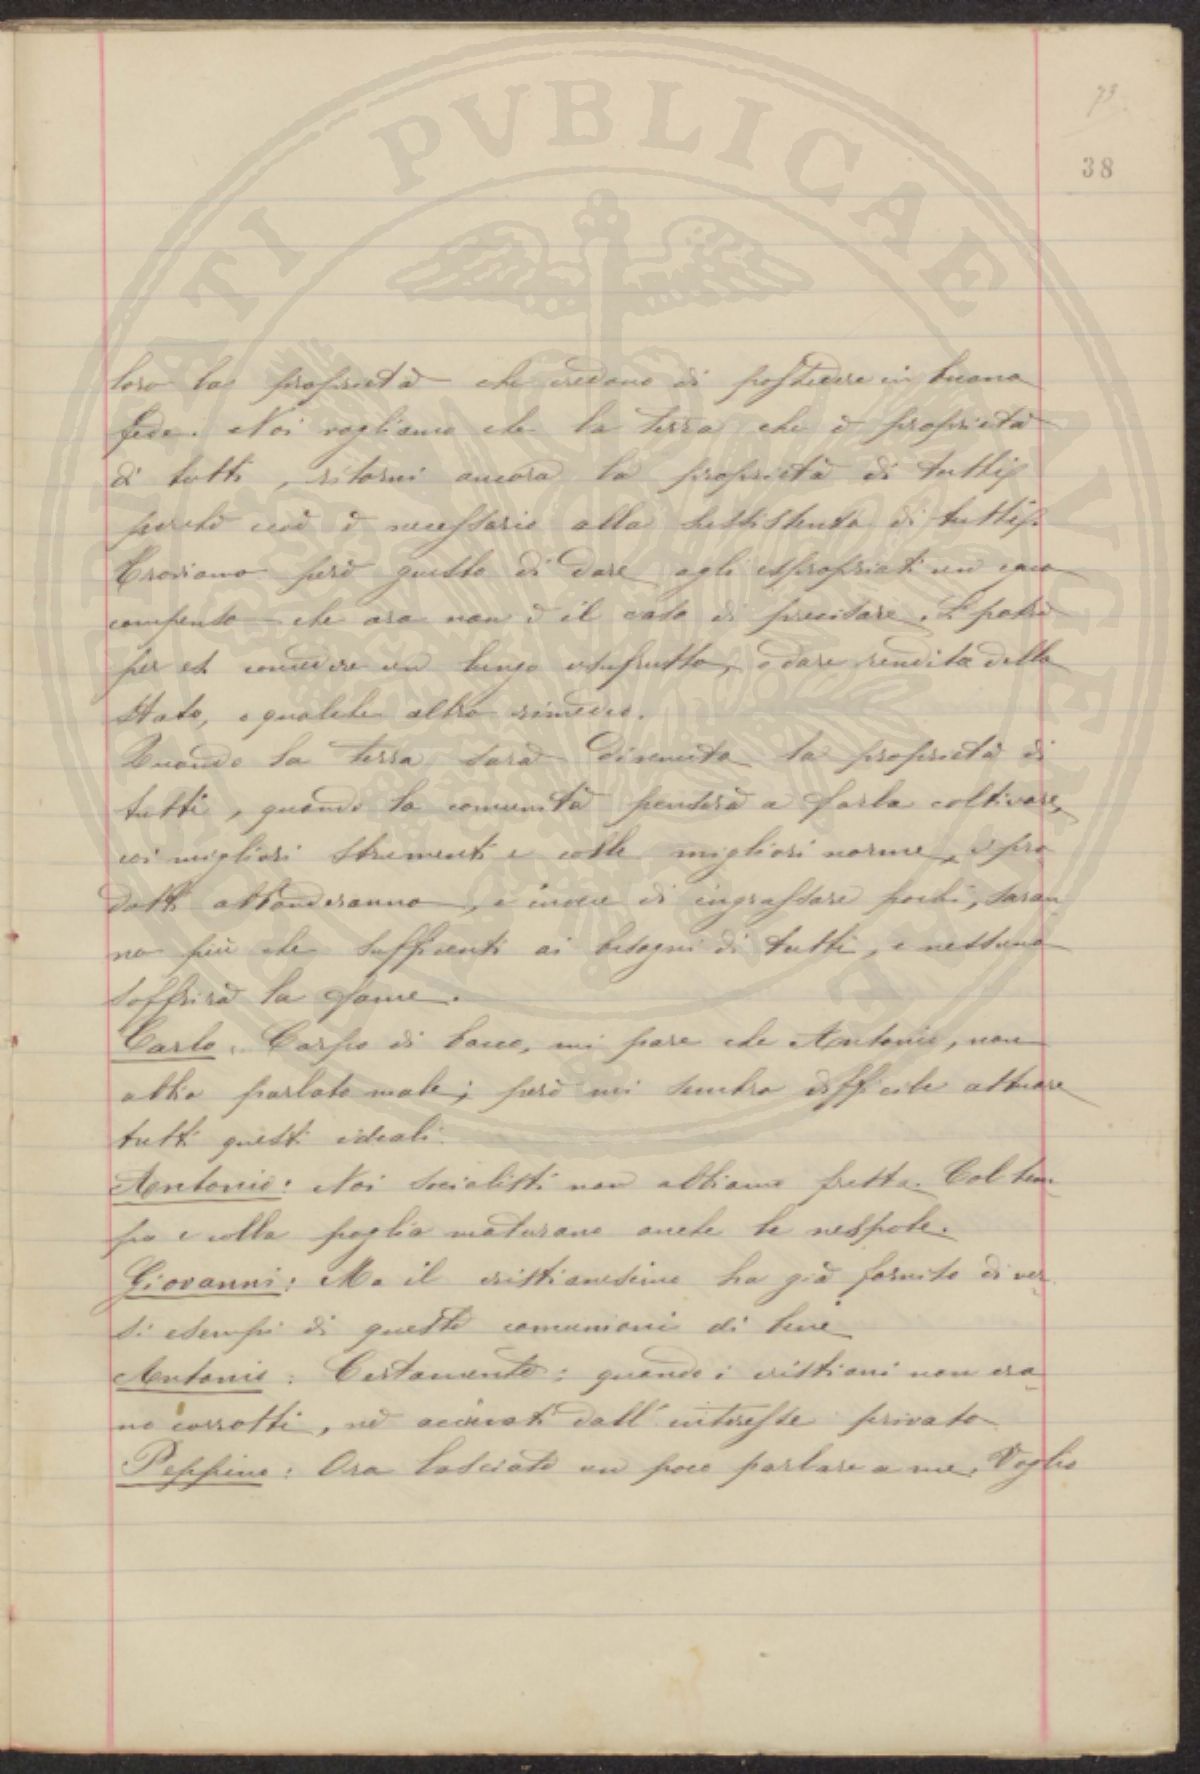 73
38
loro la proprietà che credono di possedere in buona
fede. Noi vogliamo che la terra che è proprietà
di tutti, ritorni ancora la proprietà di tutti,
perchè ciò è necessario alla sussistenza di tutti.
Troviamo però giusto di dare agli espropriati un equo
compenso che ora non è il caso di precisare. Si potrà
per es. concedere un lungo usufrutto, o dare rendita dello
Stato, o qualche altro rimedio.
Quando la terra sarà divenuta la proprietà di
tutti, quando la comunità penserà a farla coltivare,
coi migliori strumenti e colle migliori norme, i pro
dotti abbonderanno, e invece di ingrassare pochi, saran
no più che sufficenti ai bisogni di tutti, e nessuno
soffrirà la fame.
Carlo. Corpo di bacco, mi pare che Antonio, non
abbia parlato male; però mi sembra difficile attuare
tutti questi ideali.
Antonio: Noi socialisti non abbiamo fretta. Col tem
po e colla paglia maturano anche le nespole.
Giovanni: Ma il cristianesimo ha già fornito diver
si esempi di queste comunioni di beni
Antonio: Certamente; quando i cristiani non era
no corrotti, nè accecati dall'interesse privato
Peppino: Ora lasciate un poco parlare a me. Voglio
PUBLICAE